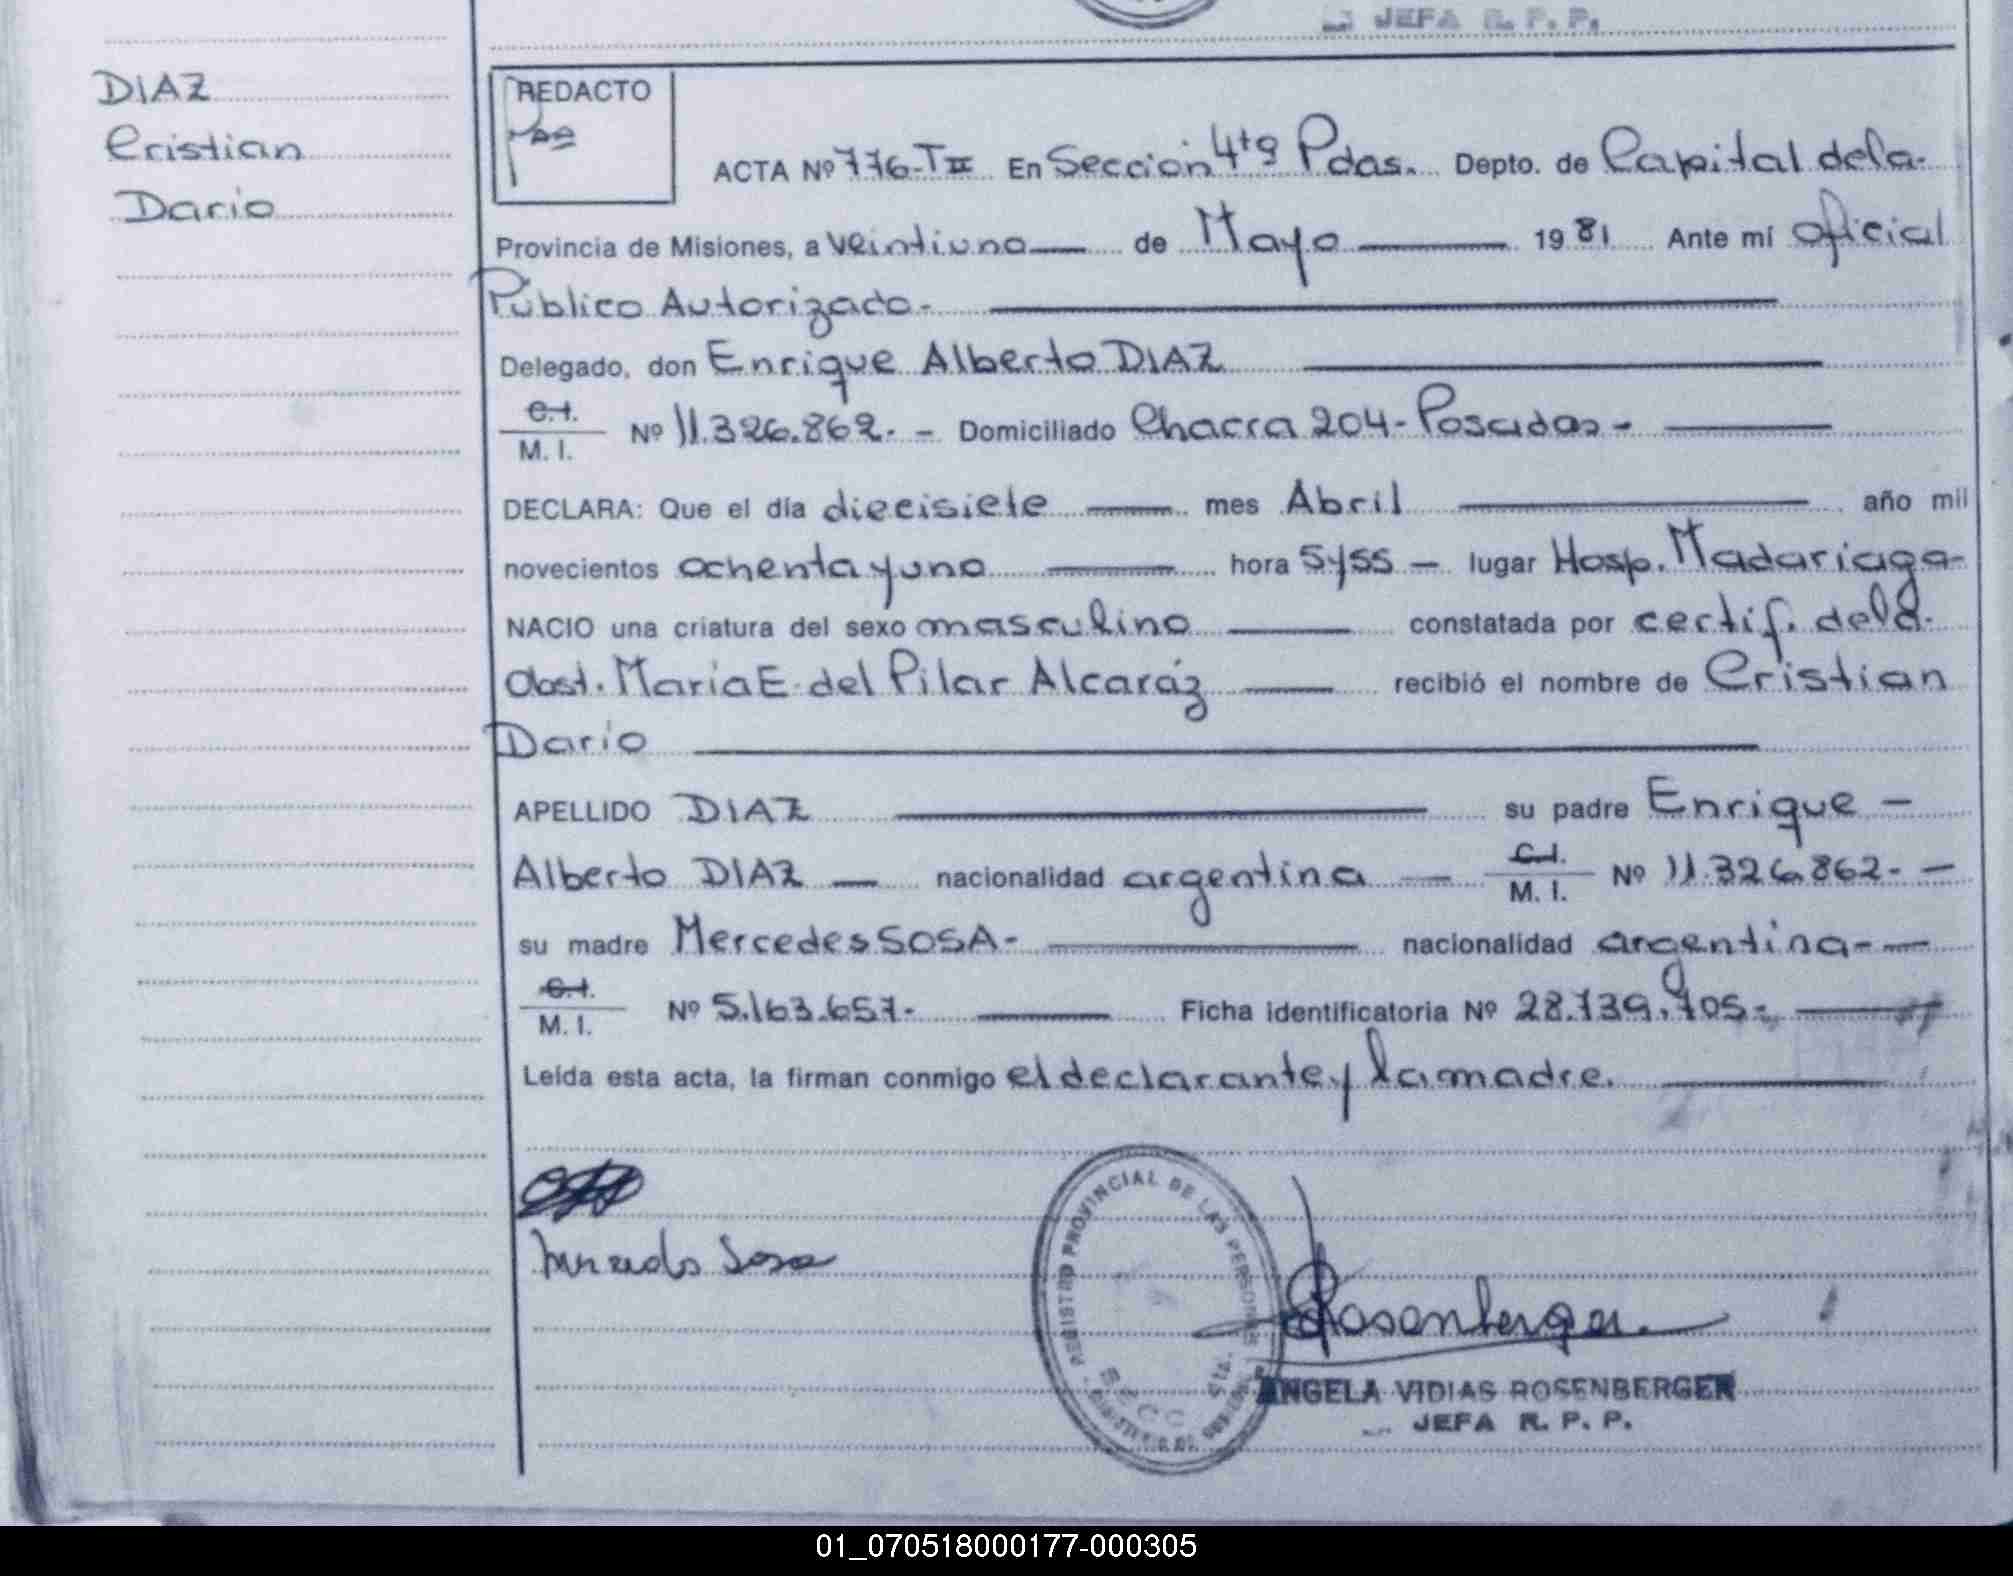 JEFA R. P. P.
DIAZ
Cristian
Dario
REDACTO
ACTA Nº 776-TII En Sección 4ta Pdas. Depto. de Capital de la-
Provincia de Misiones, a veintiuno — de Mayo — 1981 Ante mí oficial
Público Autorizado-
Delegado, don Enrique Alberto DIAZ
C.I.
M. I.
Nº 11.326.862.- Domiciliado Chacra 204-Posadas-
DECLARA: Que el día diecisiete — mes Abril — año mil
novecientos ochenta y uno — hora 5 y 55 — lugar Hosp. Madariaga-
NACIO una criatura del sexo masculino — constatada por certif. de la
Obst. María E. del Pilar Alcaráz — recibió el nombre de Cristian
Darío
APELLIDO DIAZ — su padre Enrique —
Alberto DIAZ — nacionalidad argentina — C.I. Nº 11.326.862.- —
M. I.
su madre Mercedes SOSA- — nacionalidad argentina- —
C.I.
M. I.
Nº 5.163.657.- — Ficha identificatoria Nº 28.739.905-
Leída esta acta, la firman conmigo el declarante y la madre.
Mercedes Sosa
REGISTRO PROVINCIAL DE LAS PERSONAS
SECC.
Rosenberger
ANGELA VIDIAS ROSENBERGER
JEFA R. P. P.
01_070518000177-000305